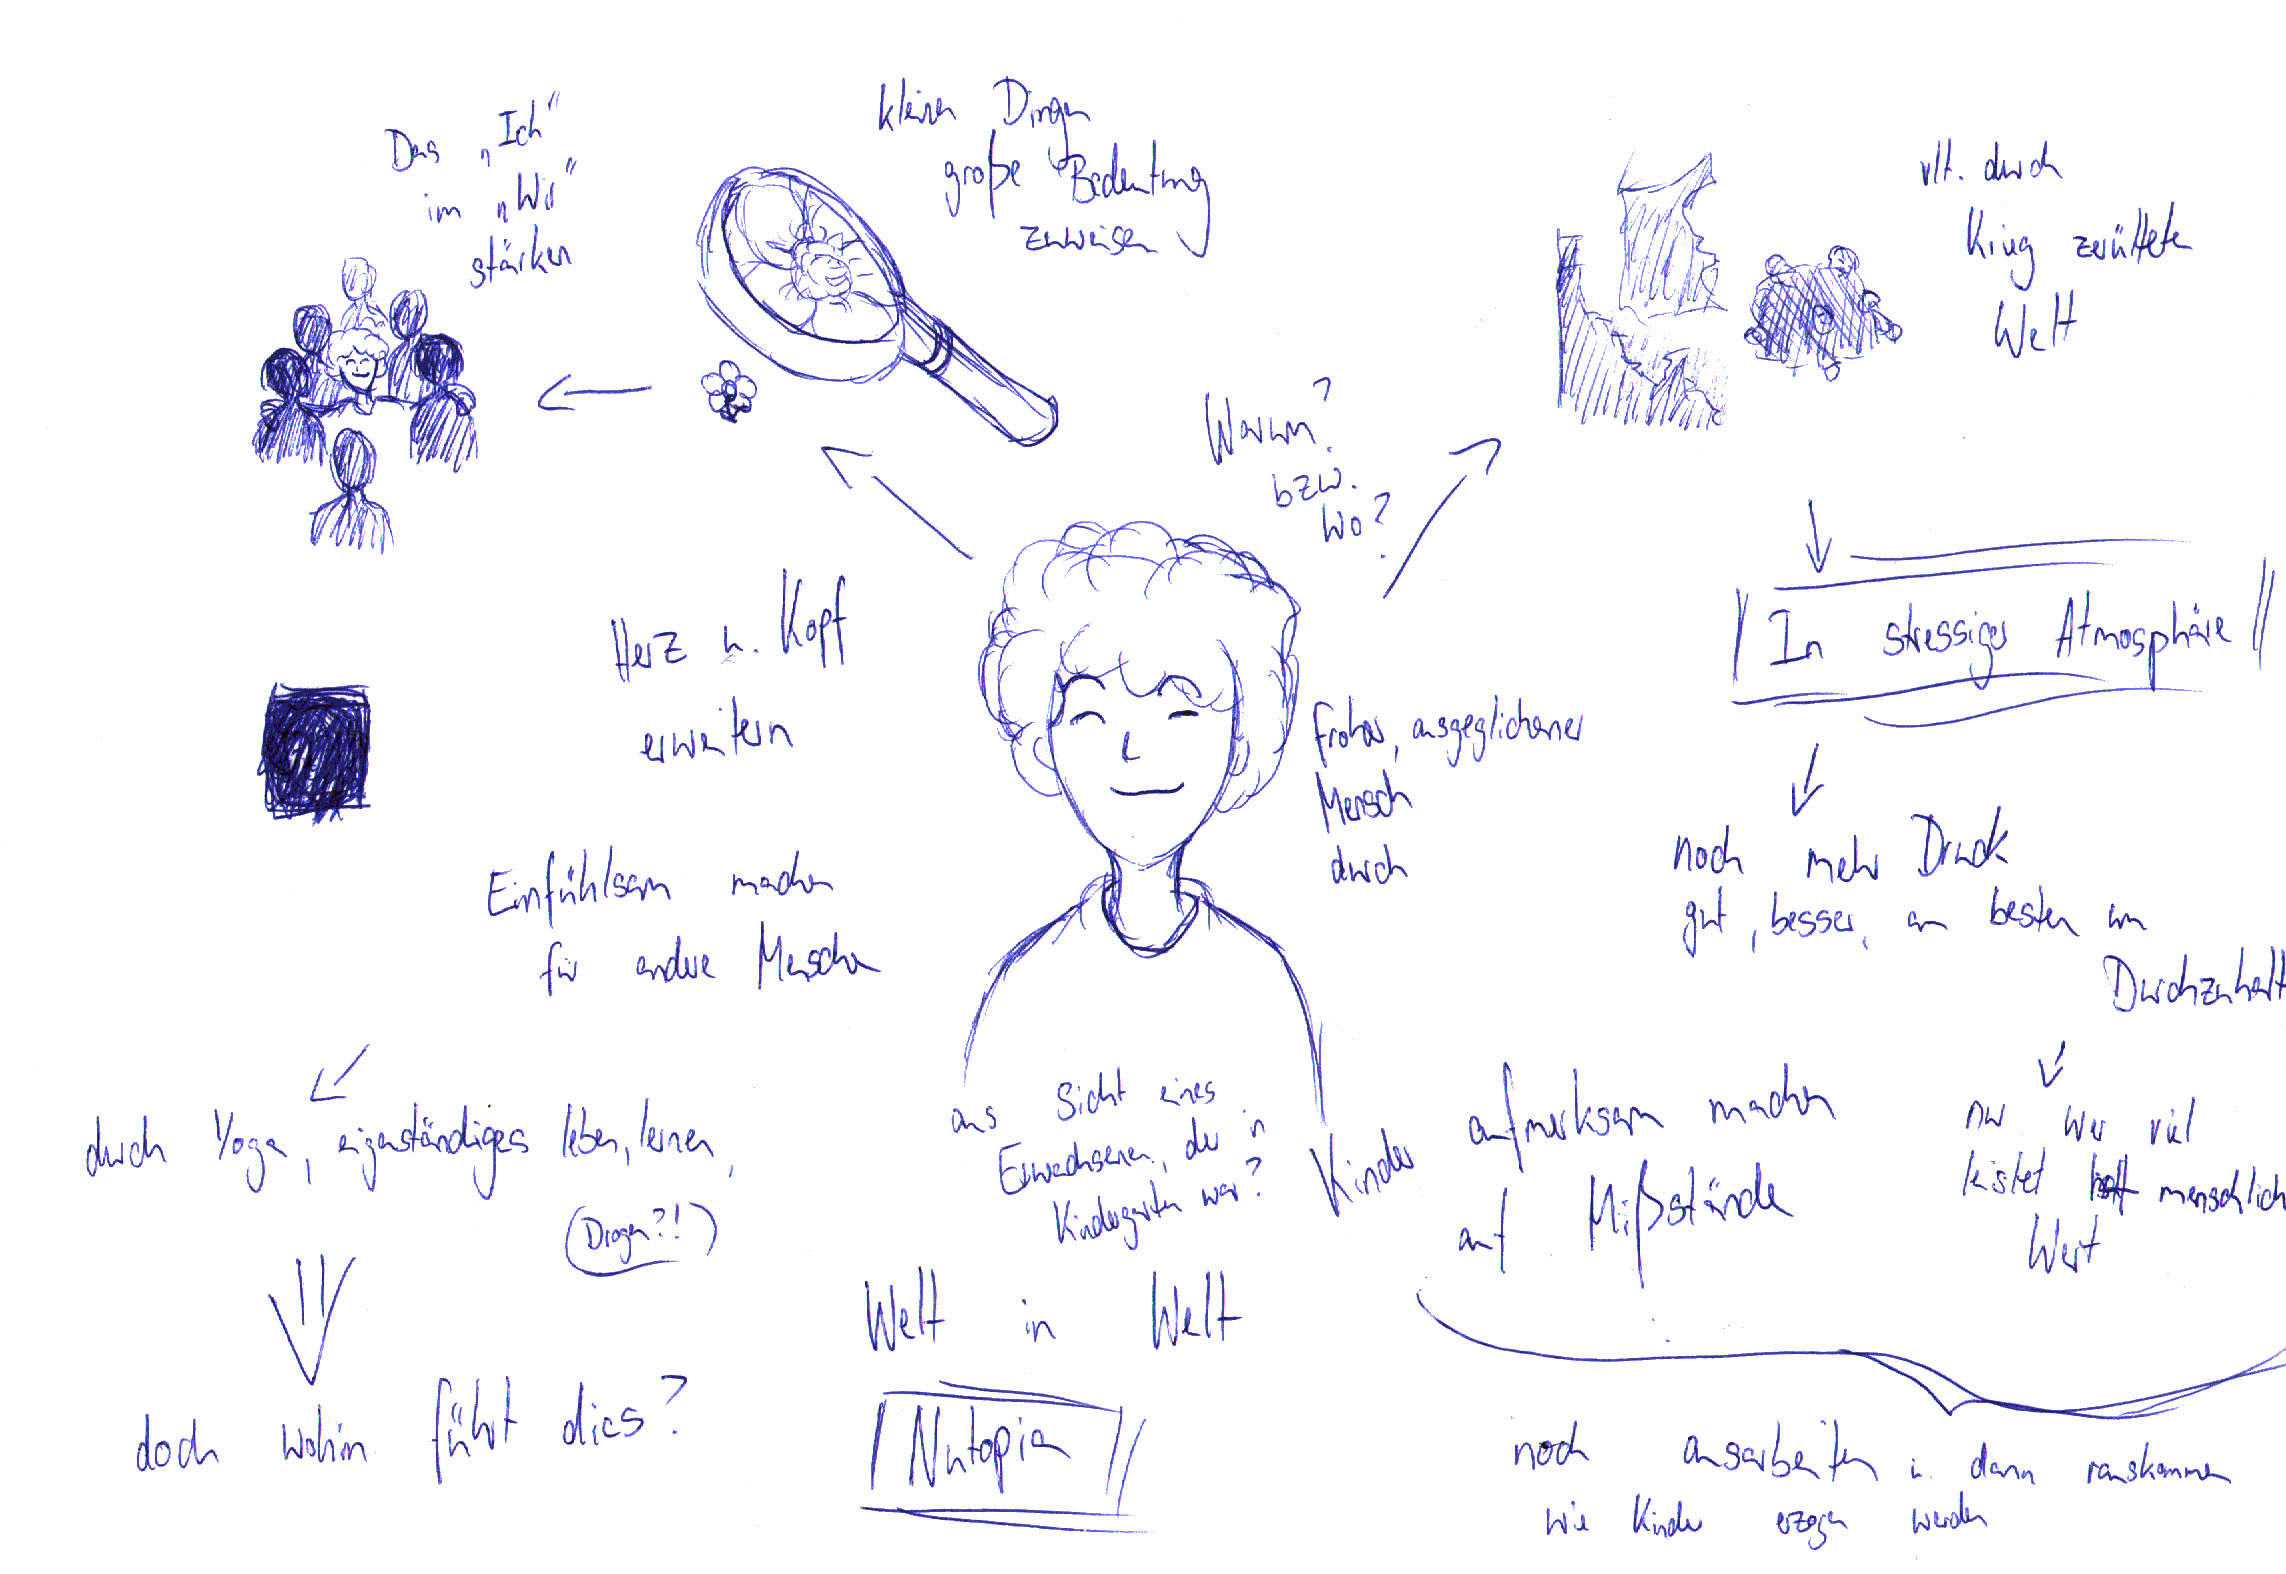 Das „Ich"
im „Wir"
stärken
kleinen Dingen
große Bedeutung
zuweisen
vlt. durch
Krieg zerüttete
Welt
Warum?
bzw.
Wo?
In stressiger Atmosphäre
Herz u. Kopf
erweitern
froher, ausgeglichener
Mensch
durch
noch mehr Druck
gut, besser, am besten um
Durchzuhalt
Einfühlsam machen
für andere Menschen
durch Yoga, eigenständiges leben, lernen,
(Drogen?!)
aus Sicht eines
Erwachsenen, der in
Kindergarten war?
Kinder aufmerksam machen
auf Mißstände
nur wer viel
leistet menschlich
Wert
Welt in Welt
doch wohin führt dies?
Nutopia
noch ausarbeiten u. dann rauskommen
wie Kinder erzogen werden